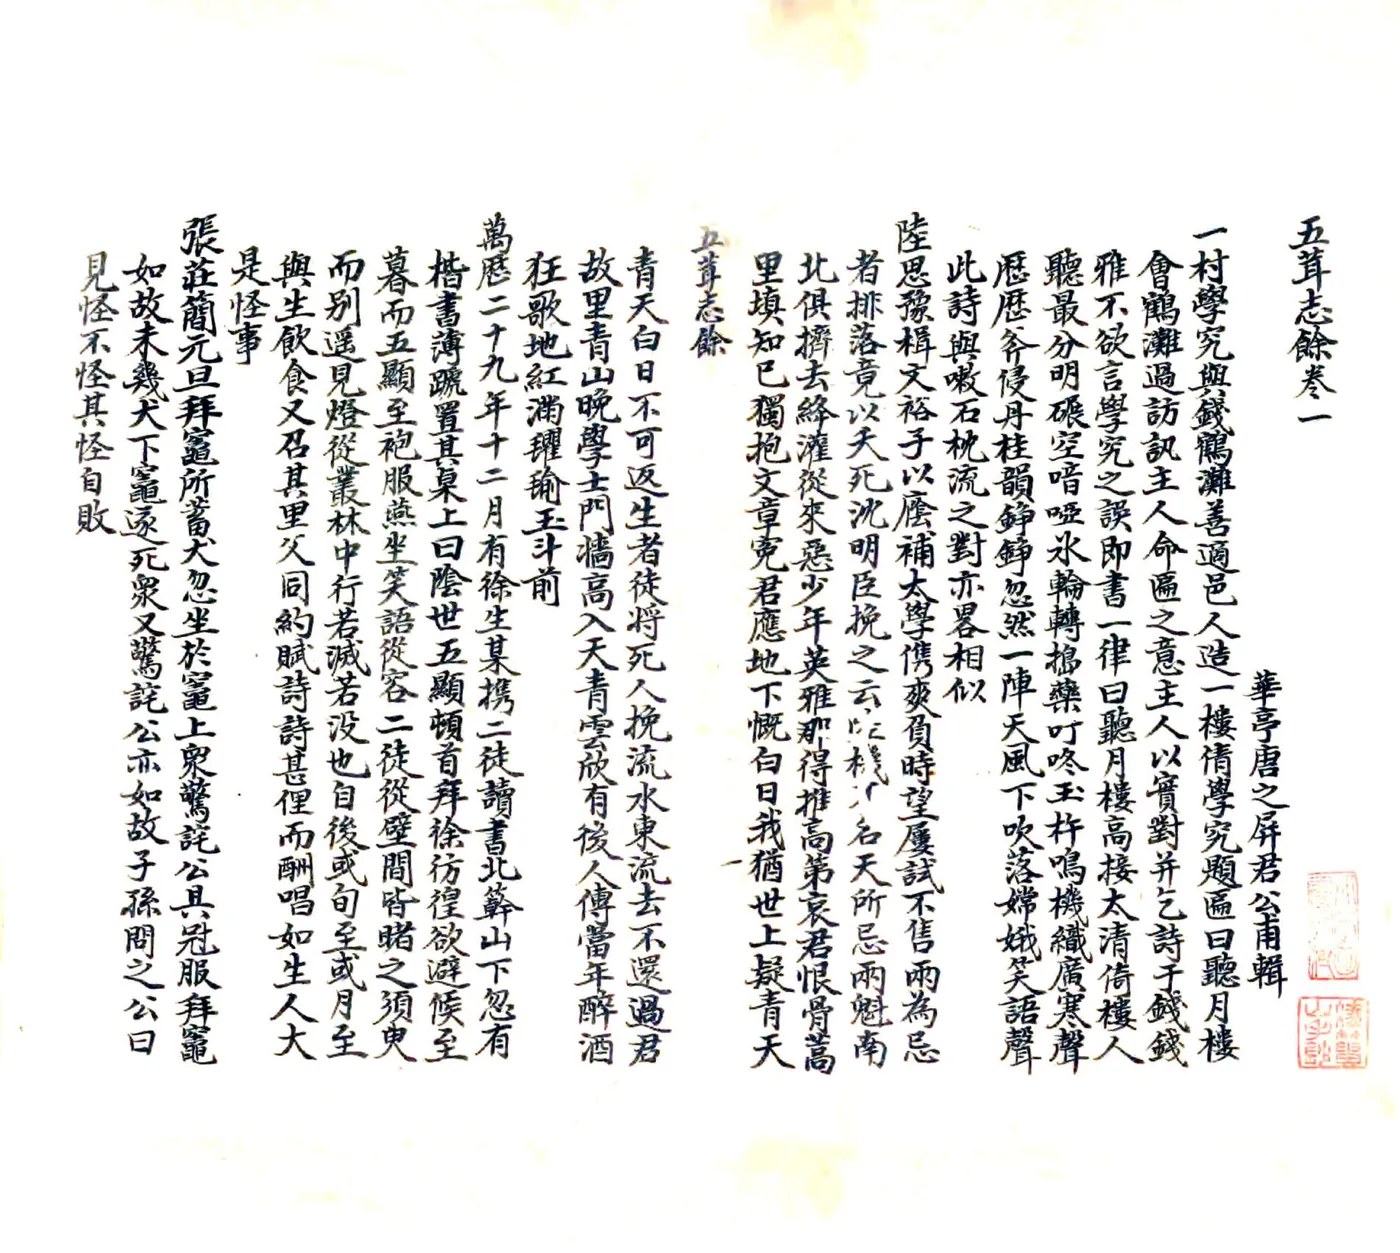 五茸志餘卷一
華亭唐之屏君公甫輯
一村學究與錢鶴灘善適邑人造一樓倩學究題匾曰聽月樓
會鶴灘過訪訊主人命匾之意主人以實對并乞詩于錢錢
雅不欲言學究之誤即書一律曰聽月樓高接太清倚樓人
聽最分明碾空喑啞氷輪轉搗藥叮咚玉杵鳴機織廣寒聲
歷歷斧侵丹桂韻錚錚忽然一陣天風下吹落嫦娥笑語聲
此詩與嗽石枕流之對亦畧相似
陸思豫楫文裕子以廕補太學儁爽負時望屢試不售兩為忌
者排落竟以夭死沈明臣挽之云 名天所忌兩魁南
北俱擠去絳灌從來惡少年英雅那得推高第哀君恨骨蒿
里填知已獨抱文章寃君應地下慨白日我猶世上疑青天
五茸志餘
青天白日不可返生者徒將死人挽流水東流去不還過君
故里青山晚學士門牆高入天青雲欣有後人傳當年醉酒
狂歌地紅滿瓓瑜玉斗前
萬歷二十九年十二月有徐生某携二徒讀書北簳山下忽有
楷書薄蹏置其桌上曰陰世五顯頓首拜徐彷徨欲避候至
暮而五顯至袍服燕坐笑語從容二徒從壁間皆睹之須臾
而別遥見燈從叢林中行若滅若没也自後或旬至或月至
與生飲食又召其里父同約賦詩詩甚俚而酬唱如生人大
是怪事
張莊簡元旦拜竈所蓄犬忽坐於竈上衆驚詫公具冠服拜竈
如故未幾犬下竈遂死衆又驚詫公亦如故子孫問之公曰
見怪不怪其怪自敗